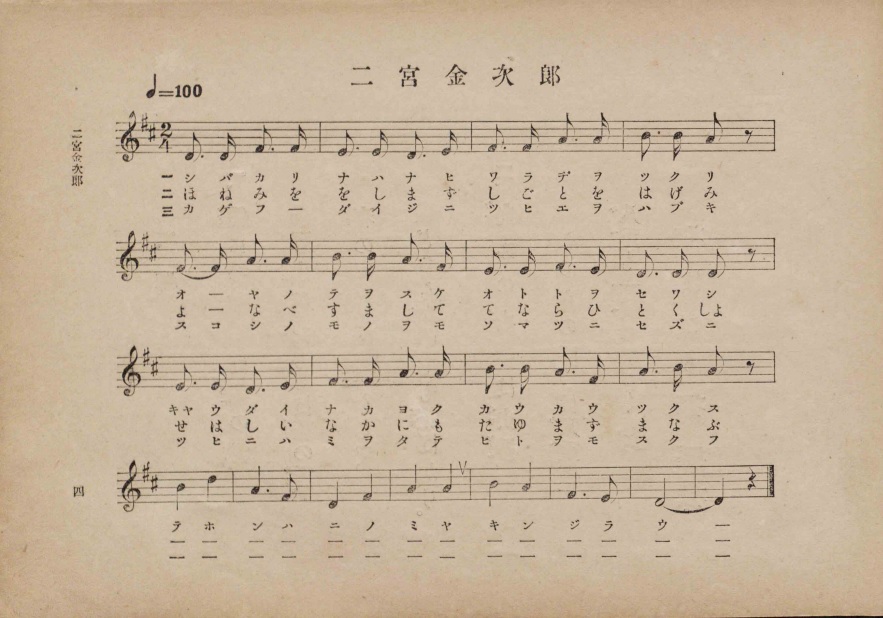 二宮金次郎
♩=100
2
4
一 シ バ カ リ ナ ハ ナ ヒ ワ ラ ヂ ヲ ツ ク リ
二 ほ ね み を を し ま ず し ご と を は げ み
三 カ ゲ フ ー ダ イ ジ ニ ツ ヒ エ ヲ ハ ブ キ
オ ー ヤ ノ テ ヲ ス ケ オ ト ト ヲ セ ワ シ
よ ー な べ す ま し て て な ら ひ と く しよ
ス ー コ シ ノ モ ノ ヲ モ ソ マ ツ ニ セ ズ ニ
キヤ ウ ダ イ ナ カ ヨ ク カ ウ カ ウ ツ ク ス
せ は し い な か に も た ゆ ま ず ま な ぶ
ツ ヒ ニ ハ ミ ヲ タ テ ヒ ト ヲ モ ス ク フ
テ ホ ン ハ ニ ノ ミ ヤ キ ン ジ ラ ウ ー
ー ー ー ー ー ー ー ー ー ー ー ー ー
ー ー ー ー ー ー ー ー ー ー ー ー ー
二宮金次郎
四